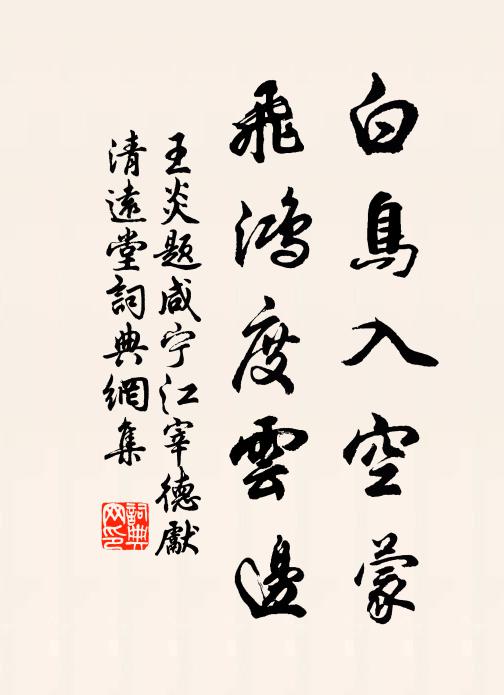 白鳥入空蒙
飛鴻度雲邊
王炎题咸宁江宰德獻
清遠堂詞典網集
詞典
网印